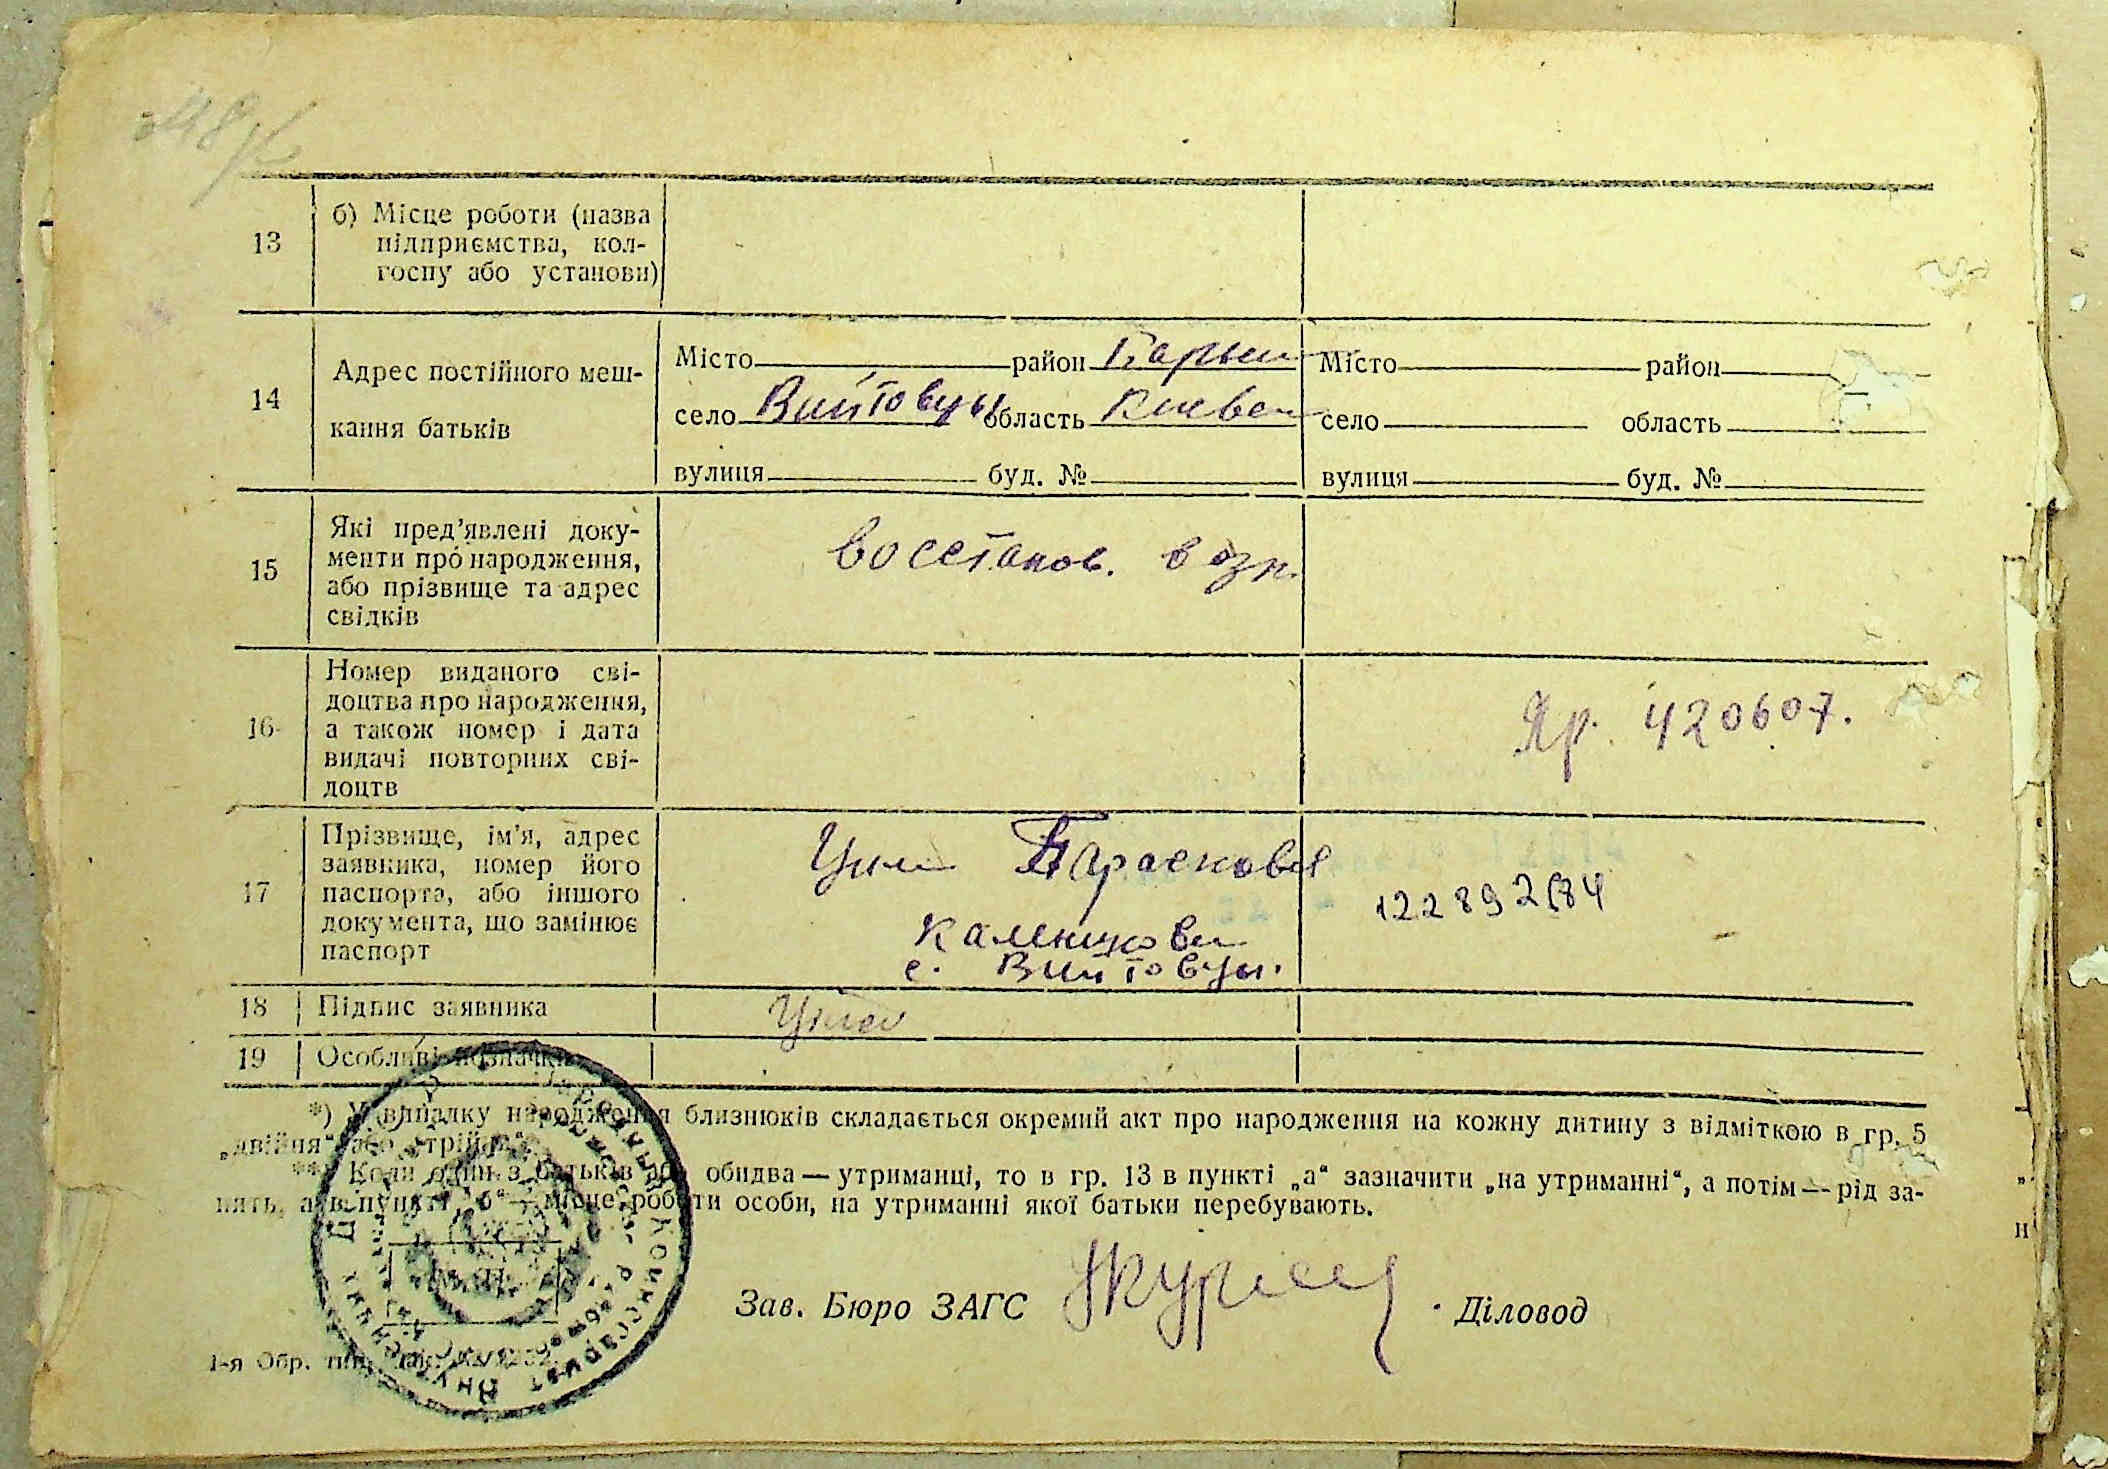 13
б) Місце роботи (назва
підприємства, кол-
госпу або установи)
14
Адрес постійного меш-
кання батьків
Місто район Барыш
село Вийтовцы область Киевск
вулиця буд. №
Місто район
село область
вулиця буд. №
15
Які пред’явлені доку-
менти про народження,
або прізвище та адрес
свідків
восстанов. возр.
16
Номер виданого сві-
доцтва про народження,
а також номер і дата
видачі повторних сві-
доцтв
Яр. 420607.
17
Прізвище, ім’я, адрес
заявника, номер його
паспорта, або іншого
документа, що замінює
паспорт
Парасковья
с. Вийтовцы.
18 Підпис заявника
19 Особливі позначки
*) У випадку народження близнюків складається окремий акт про народження на кожну дитину з відміткою в гр. 5
„двійня“ або „трійня“.
**) Коли один з батьків або обидва — утриманці, то в гр. 13 в пункті „а“ зазначити „на утриманні“, а потім — рід за-
нять, а в пункті „б“ — місце роботи особи, на утриманні якої батьки перебувають.
Зав. Бюро ЗАГС Діловод
1-я Обр. тип.